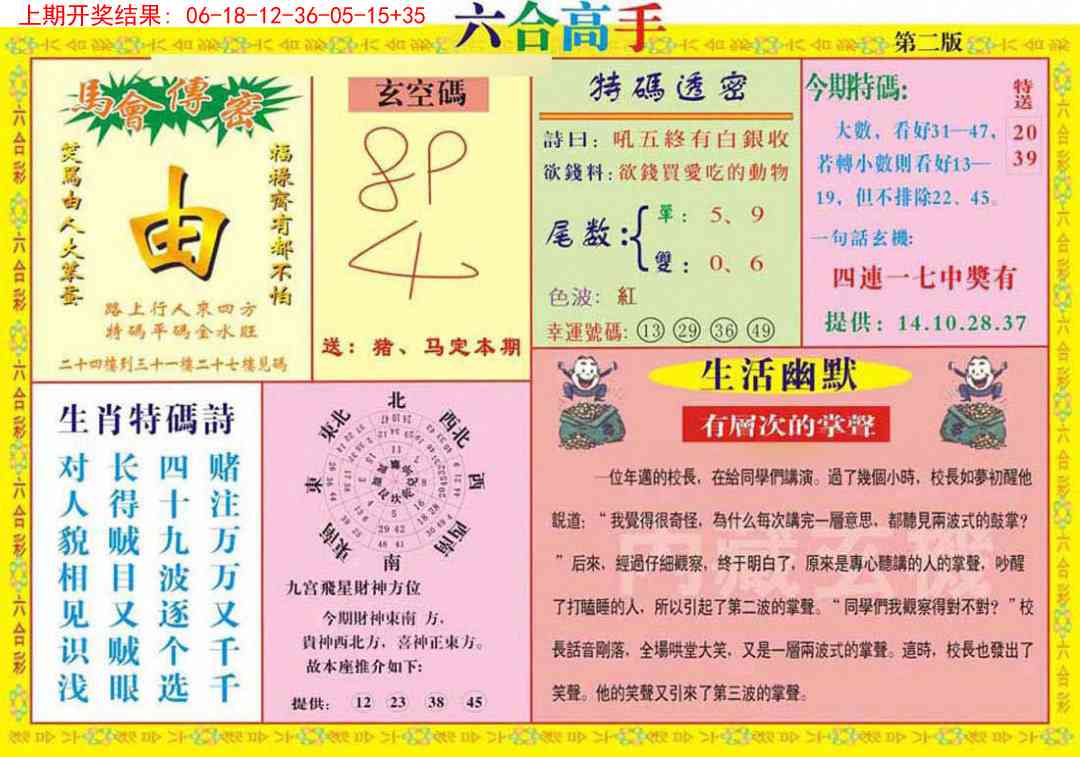 上期开奖结果：06-18-12-36-05-15+35
六合高手
第二版
馬會傳密
笑罵由人大笨蛋
由
福祿齊有都不怕
路上行人來四方
特碼平碼金水旺
二十四樓到三十一樓二十七樓見碼
玄空碼
送：猪、马定本期
特碼透密
詩曰：吼五終有白銀收
欲錢料：欲錢買愛吃的動物
尾数：
單：5、9
雙：0、6
色波：紅
幸運號碼：13 29 36 49
今期特碼:
特送
20
39
大數，看好31—47，
若轉小數則看好13—
19，但不排除22、45。
一句話玄機:
四連一七中獎有
提供：14.10.28.37
生肖特碼詩
对 长 四 赌
人 得 十 注
貌 贼 九 万
相 目 波 万
见 又 逐 又
识 贼 个 千
浅 眼 选 千
北
東北 西北
東 西
東南 西南
南
九宫飛星財神方位
今期財神東南 方，
貴神西北方，喜神正東方。
故本座推介如下:
提供: 12 23 38 45
生活幽默
有層次的掌聲
一位年邁的校長，在給同學們講演。過了幾個小時，校長如夢初醒他
説道：“我覺得很奇怪，為什么每次講完一層意思，都聽見兩波式的鼓掌？
”后來，經過仔細觀察，终于明白了，原來是專心聽講的人的掌聲，吵醒
了打瞌睡的人，所以引起了第二波的掌聲。“同學們我觀察得對不對？”校
長話音剛落，全場哄堂大笑，又是一層兩波式的掌聲。這時，校長也發出了
笑聲。他的笑聲又引來了第三波的掌聲。